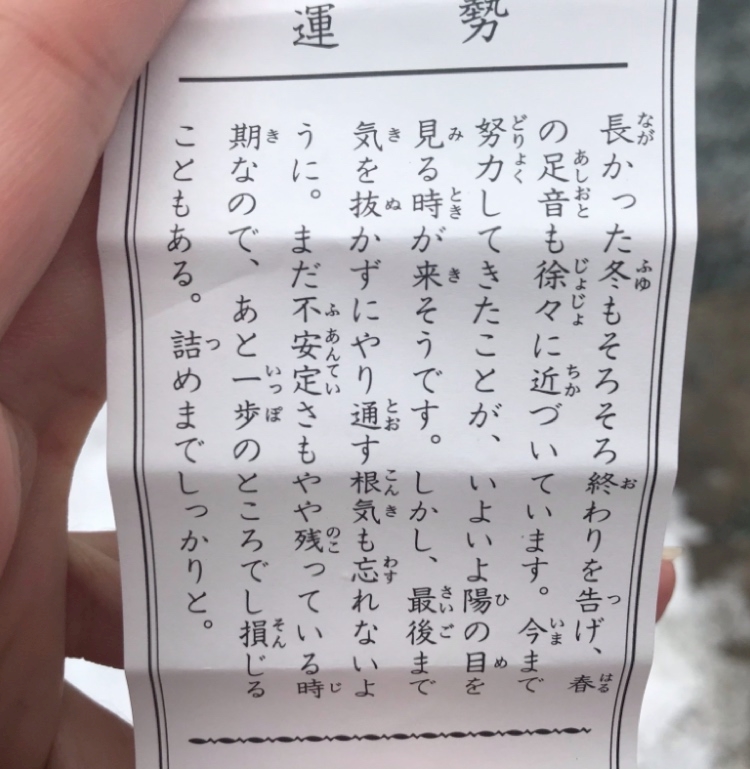 運勢
長かった冬もそろそろ終わりを告げ、春
の足音も徐々に近づいています。今まで
努力してきたことが、いよいよ陽の目を
見る時が来そうです。しかし、最後まで
気を抜かずにやり通す根気も忘れないよ
うに。まだ不安定さもやや残っている時
期なので、あと一歩のところでし損じる
こともある。詰めまでしっかりと。